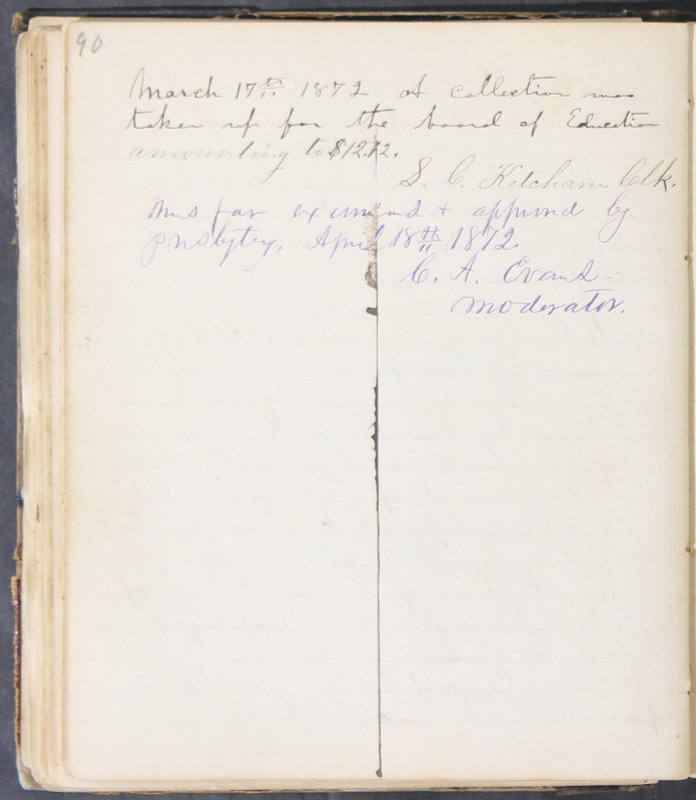 90
March 17th 1872 A collection was
taken up for the board of Education
amounting to $12.12.
S. C. Ketcham Clk.
Thus far examined + approved by
presbytery, April 18th 1872.
C. A. Evans
moderator.